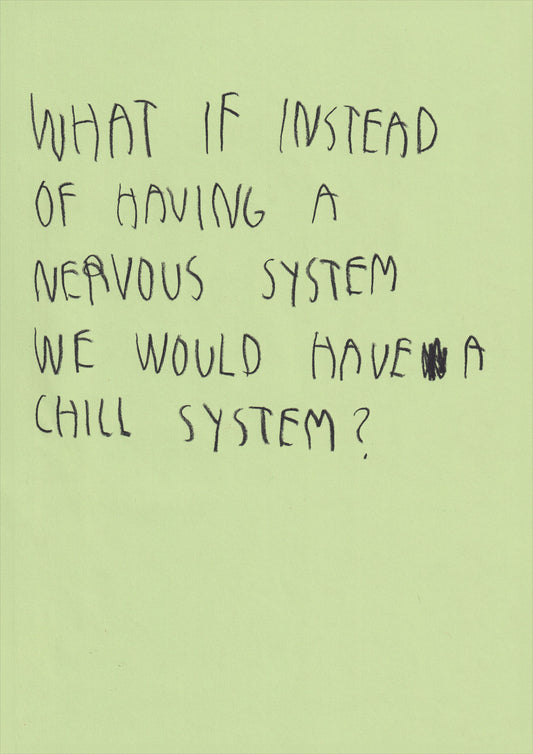 WHAT IF INSTEAD
OF HAVING A
NERVOUS SYSTEM
WE WOULD HAVE A
CHILL SYSTEM?